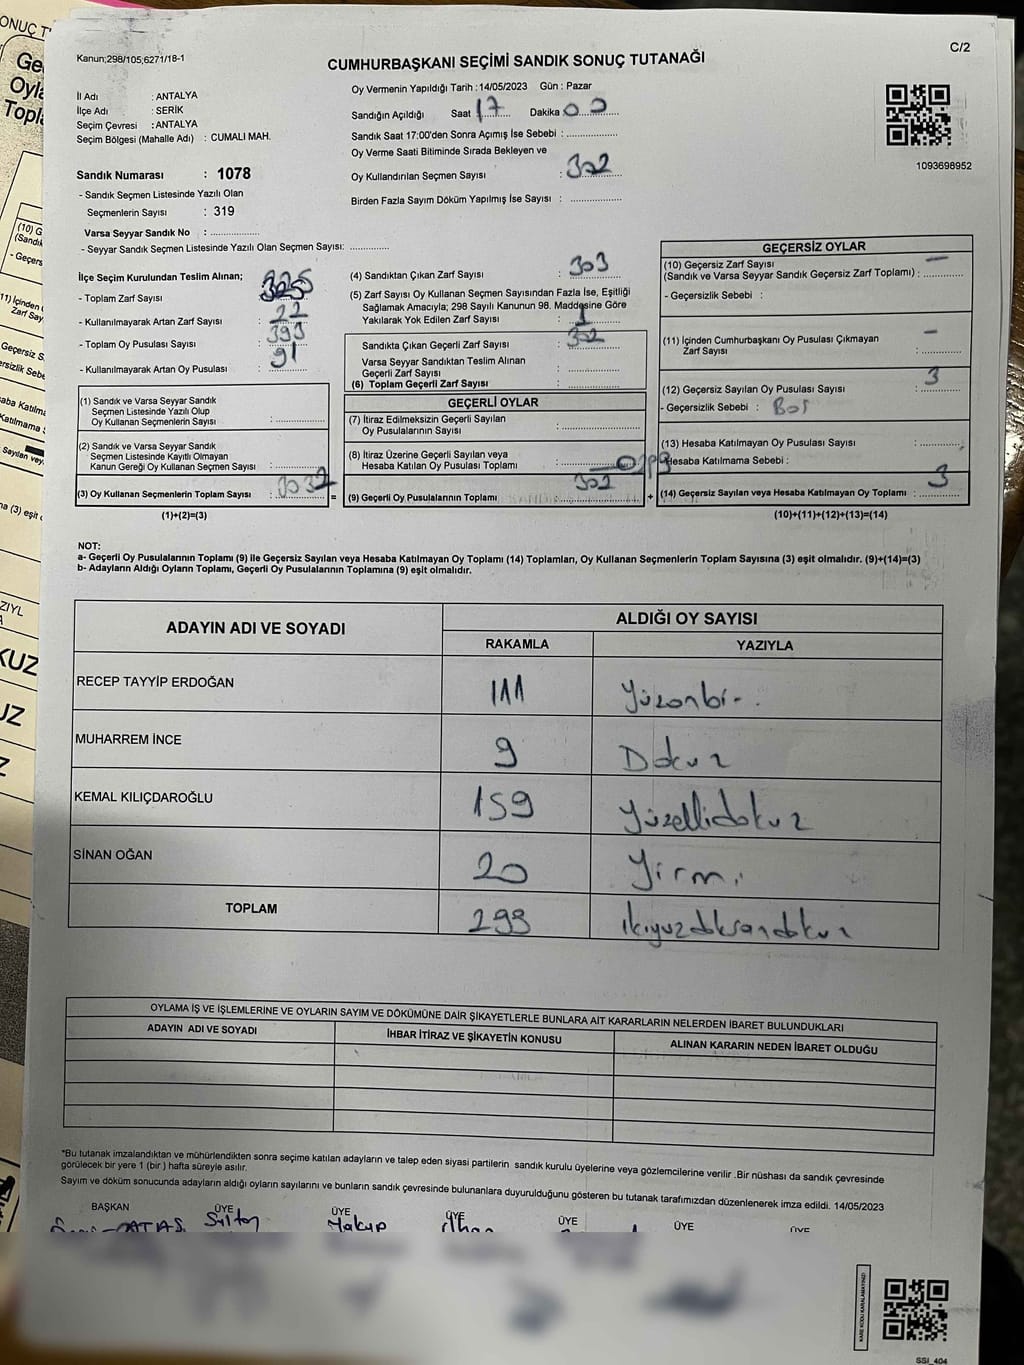 ONUÇ T
Kanun;298/105;6271/18-1
C/2
CUMHURBAŞKANI SEÇİMİ SANDIK SONUÇ TUTANAĞI
İl Adı : ANTALYA
İlçe Adı : SERİK
Seçim Çevresi : ANTALYA
Seçim Bölgesi (Mahalle Adı) : CUMALI MAH.
Oy Vermenin Yapıldığı Tarih :14/05/2023 Gün : Pazar
Sandığın Açıldığı Saat 17 Dakika 00
Sandık Saat 17:00'den Sonra Açımış İse Sebebi : ..............
Oy Verme Saati Bitiminde Sırada Bekleyen ve
Oy Kullandırılan Seçmen Sayısı : 302
Birden Fazla Sayım Döküm Yapılmış İse Sayısı : ..............
1093698952
Sandık Numarası : 1078
- Sandık Seçmen Listesinde Yazılı Olan
Seçmenlerin Sayısı : 319
Varsa Seyyar Sandık No : ..............
- Seyyar Sandık Seçmen Listesinde Yazılı Olan Seçmen Sayısı: ............
İlçe Seçim Kurulundan Teslim Alınan;
- Toplam Zarf Sayısı : 325
- Kullanılmayarak Artan Zarf Sayısı : 22
- Toplam Oy Pusulası Sayısı : 393
- Kullanılmayarak Artan Oy Pusulası : 91
(1) Sandık ve Varsa Seyyar Sandık
Seçmen Listesinde Yazılı Olup
Oy Kullanan Seçmenlerin Sayısı : ..............
(2) Sandık ve Varsa Seyyar Sandık
Seçmen Listesinde Kayıtlı Olmayan
Kanun Gereği Oy Kullanan Seçmen Sayısı : ..............
(3) Oy Kullanan Seçmenlerin Toplam Sayısı :
(1)+(2)=(3)
(4) Sandıktan Çıkan Zarf Sayısı : 303
(5) Zarf Sayısı Oy Kullanan Seçmen Sayısından Fazla İse, Eşitliği
Sağlamak Amacıyla; 298 Sayılı Kanunun 98. Maddesine Göre
Yakılarak Yok Edilen Zarf Sayısı : 1
Sandıkta Çıkan Geçerli Zarf Sayısı : 302
Varsa Seyyar Sandıktan Teslim Alınan
Geçerli Zarf Sayısı : ..............
(6) Toplam Geçerli Zarf Sayısı : ..............
GEÇERLİ OYLAR
(7) İtiraz Edilmeksizin Geçerli Sayılan
Oy Pusulalarının Sayısı : ..............
(8) İtiraz Üzerine Geçerli Sayılan veya
Hesaba Katılan Oy Pusulası Toplamı :
= (9) Geçerli Oy Pusulalarının Toplamı 302
GEÇERSİZ OYLAR
(10) Geçersiz Zarf Sayısı
(Sandık ve Varsa Seyyar Sandık Geçersiz Zarf Toplamı) : —
- Geçersizlik Sebebi :
(11) İçinden Cumhurbaşkanı Oy Pusulası Çıkmayan
Zarf Sayısı : —
(12) Geçersiz Sayılan Oy Pusulası Sayısı : 3
- Geçersizlik Sebebi : Boş
(13) Hesaba Katılmayan Oy Pusulası Sayısı : ..............
Hesaba Katılmama Sebebi :
+ (14) Geçersiz Sayılan veya Hesaba Katılmayan Oy Toplamı : 3
(10)+(11)+(12)+(13)=(14)
NOT:
a- Geçerli Oy Pusulalarının Toplamı (9) ile Geçersiz Sayılan veya Hesaba Katılmayan Oy Toplamı (14) Toplamları, Oy Kullanan Seçmenlerin Toplam Sayısına (3) eşit olmalıdır. (9)+(14)=(3)
b- Adayların Aldığı Oyların Toplamı, Geçerli Oy Pusulalarının Toplamına (9) eşit olmalıdır.
ADAYIN ADI VE SOYADI
ALDIĞI OY SAYISI
RAKAMLA YAZIYLA
RECEP TAYYİP ERDOĞAN 111 Yüzonbir
MUHARREM İNCE 9 Dokuz
KEMAL KILIÇDAROĞLU 159 Yüzellidokuz
SİNAN OĞAN 20 Yirmi
TOPLAM 299 ikiyüzdoksandokuz
OYLAMA İŞ VE İŞLEMLERİNE VE OYLARIN SAYIM VE DÖKÜMÜNE DAİR ŞİKAYETLERLE BUNLARA AİT KARARLARIN NELERDEN İBARET BULUNDUKLARI
ADAYIN ADI VE SOYADI İHBAR İTİRAZ VE ŞİKAYETİN KONUSU ALINAN KARARIN NEDEN İBARET OLDUĞU
*Bu tutanak imzalandıktan ve mühürlendikten sonra seçime katılan adayların ve talep eden siyasi partilerin sandık kurulu üyelerine veya gözlemcilerine verilir .Bir nüshası da sandık çevresinde
görülecek bir yere 1 (bir ) hafta süreyle asılır.
Sayım ve döküm sonucunda adayların aldığı oyların sayılarını ve bunların sandık çevresinde bulunanlara duyurulduğunu gösteren bu tutanak tarafımızdan düzenlenerek imza edildi. 14/05/2023
BAŞKAN ÜYE ÜYE ÜYE ÜYE ÜYE ÜYE
Sultan Yakup ilhan
KARE KODU KARALAMAYINIZ!
SSI_404